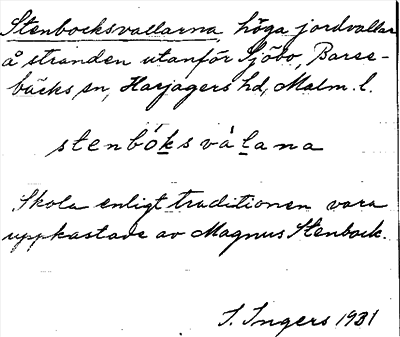 Stenbocksvallarna, höga jordvallar
å stranden utanför Sjöbo, Barse-
bäcks sn, Harjagers hd, Malm. l.
stenbóksvàlana
Skola enligt traditionen vara
uppkastade av Magnus Stenbock.
I. Ingers 1931